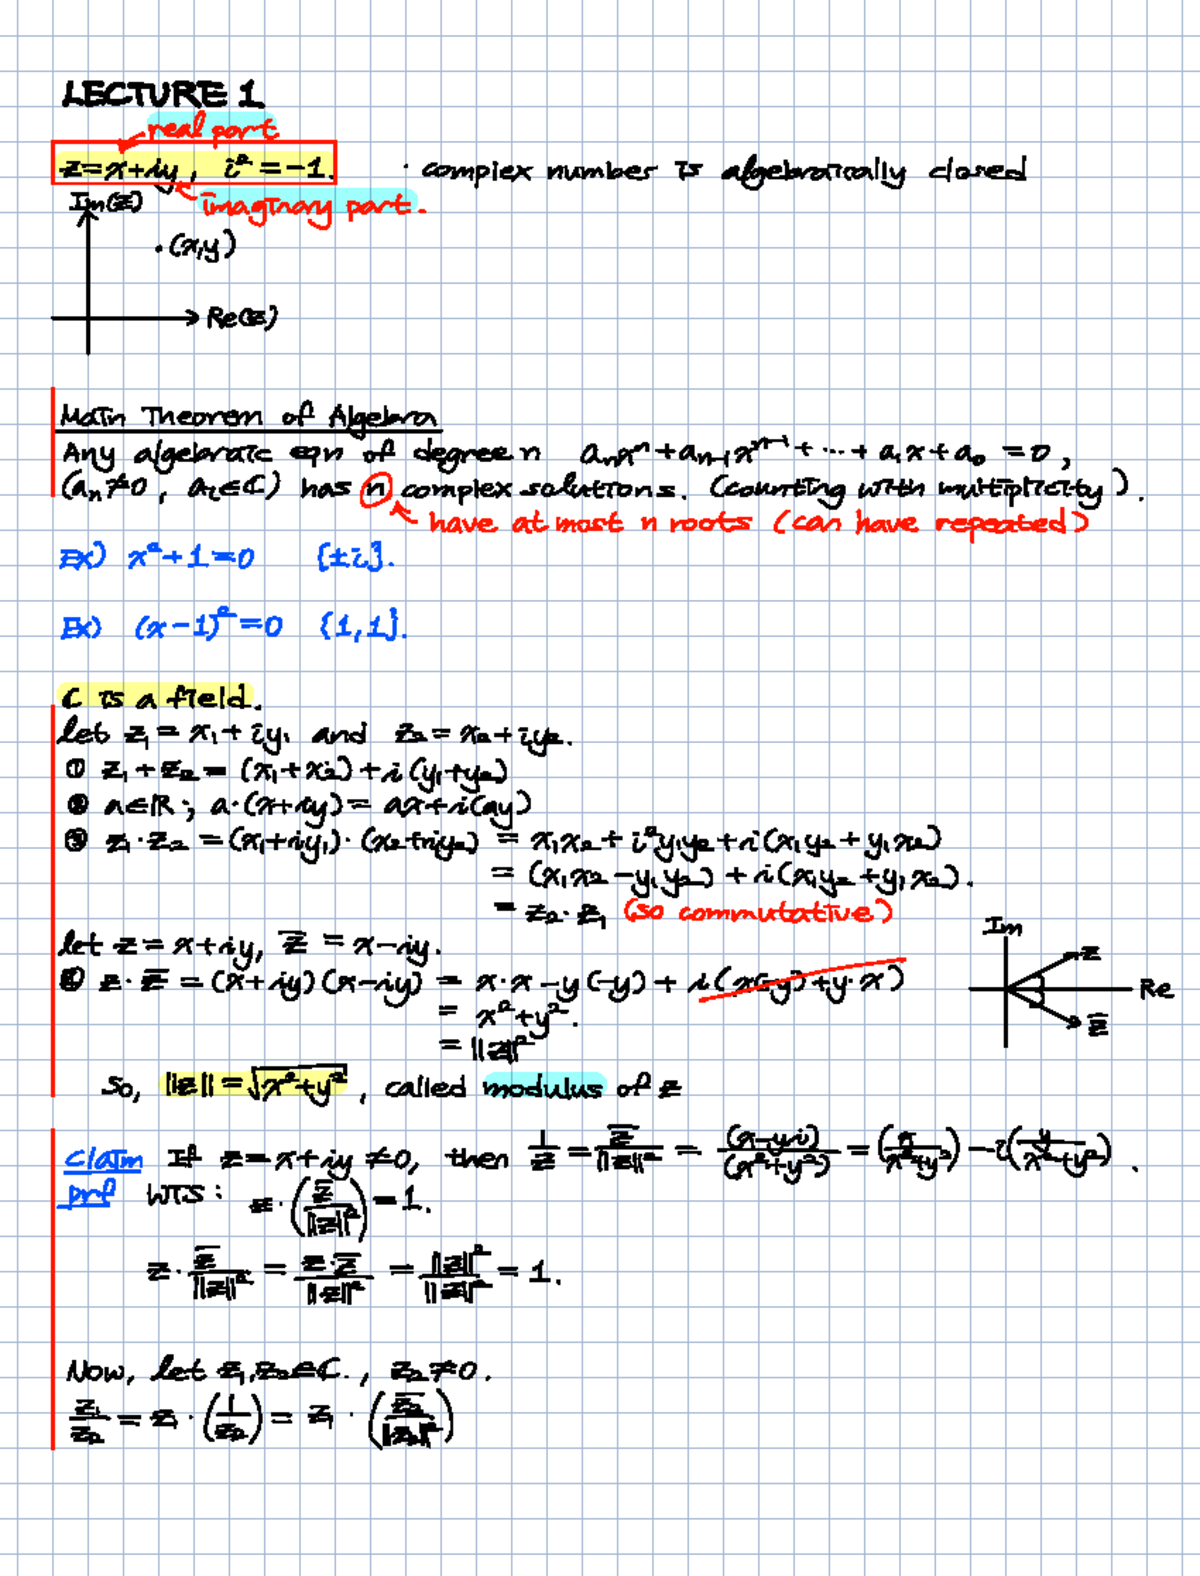 LECTURE 1
real part
z=x+iy, i²=-1.
· complex number is algebraically closed
imaginary part.
Im(z)
·(x,y)
Re(z)
Main Theorem of Algebra
Any algebraic eqn of degree n aₙxⁿ+aₙ₋₁xⁿ⁻¹+...+a₁x+a₀ =0,
(aₙ≠0, aᵢ∈ℂ) has n complex solutions. (counting with multiplicity).
have at most n roots (can have repeated)
Ex) x²+1=0 {±i}.
Ex) (x-1)²=0 {1,1}.
ℂ is a field.
let z₁ = x₁+iy₁ and z₂= x₂+iy₂.
① z₁+z₂= (x₁+x₂)+i(y₁+y₂)
② a∈ℝ; a·(x+iy)= ax+i(ay)
③ z₁·z₂ =(x₁+iy₁)·(x₂+iy₂) = x₁x₂+i²y₁y₂+i(x₁y₂+y₁x₂)
= (x₁x₂-y₁y₂)+i(x₁y₂+y₁x₂).
= z₂·z₁ (so commutative)
let z=x+iy, z̅ =x-iy.
④ z·z̅ =(x+iy)(x-iy) = x·x-y(-y)+i(x(-y)+y·x)
= x²+y².
= ||z||²
Im
z
Re
z̅
So, ||z||=√(x²+y²), called modulus of z
Claim If z=x+iy≠0, then 1/z = z̅/||z||² = (x-yi)/(x²+y²) = (x/(x²+y²))-i(y/(x²+y²)).
prf WTS: z·(z̅/||z||²)=1.
z·z̅/||z||² = z·z̅/||z||² = ||z||²/||z||² = 1.
Now, let z₁,z₂∈ℂ., z₂≠0.
z₁/z₂ = z₁·(1/z₂) = z₁·(z̅₂/||z₂||²)